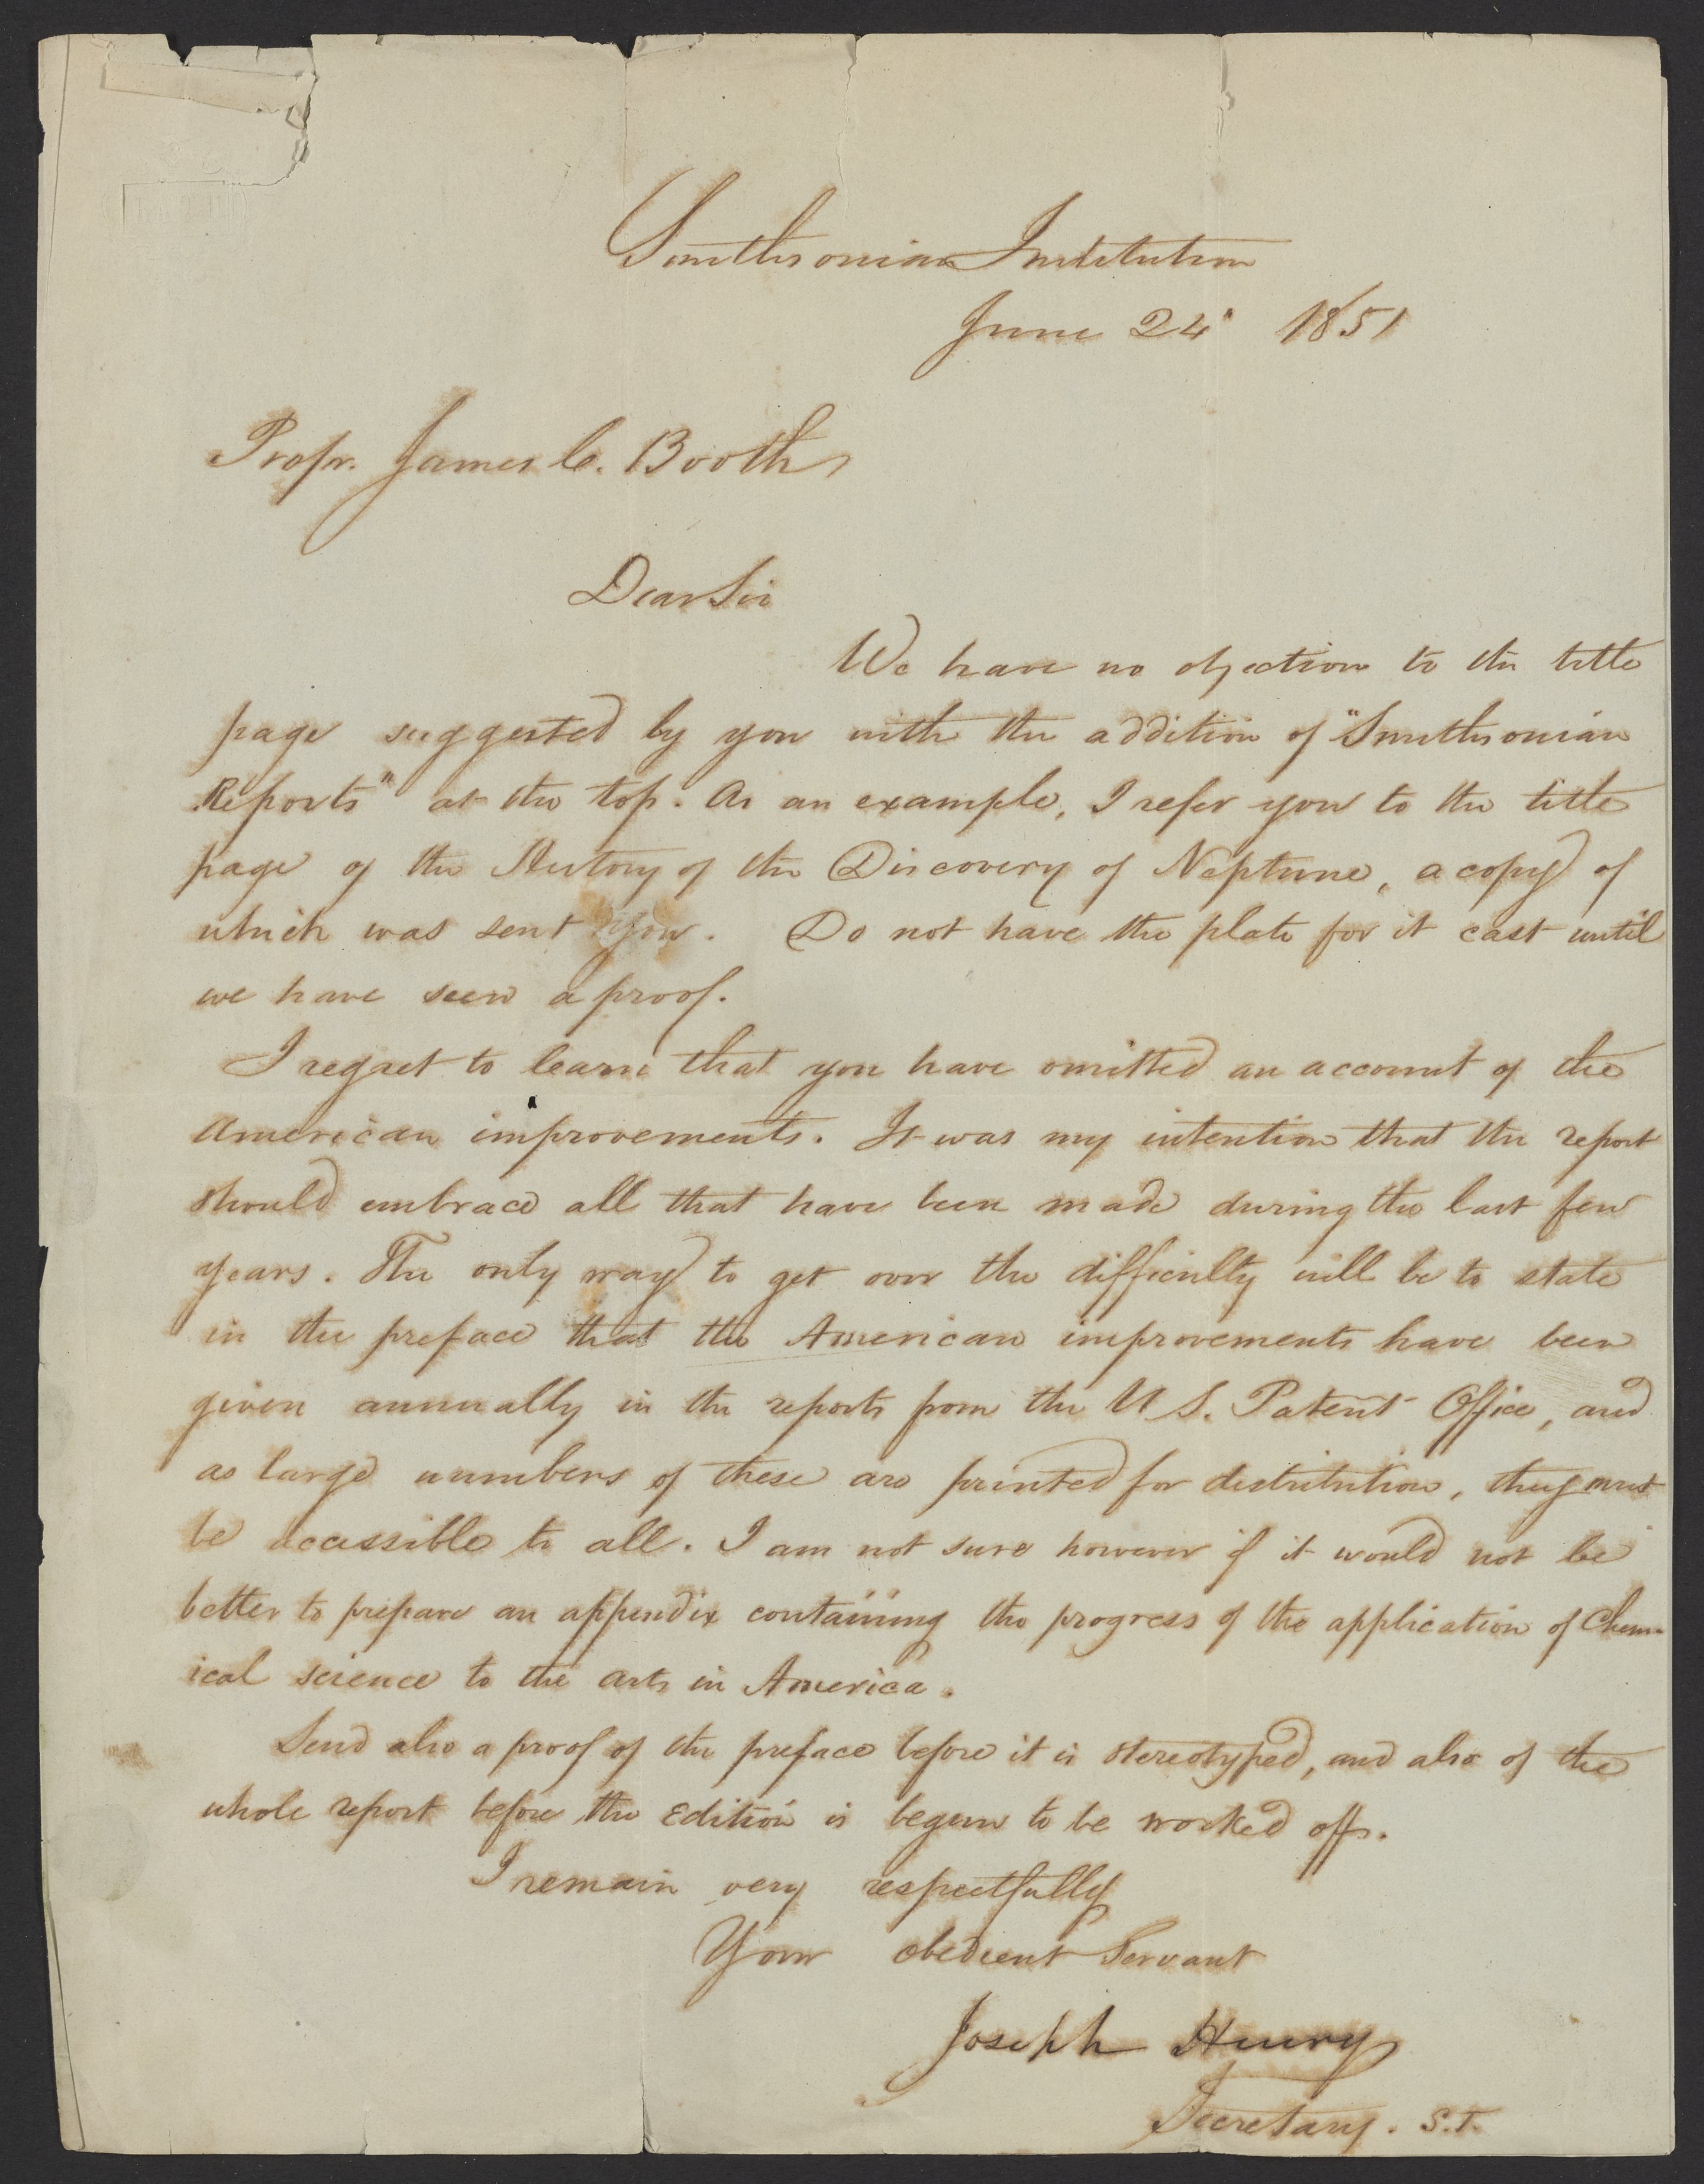 Smithsonian Institution
June 24" 1851
Profr. James C. Booth
Dear Sir
We have no objection to the title
page suggested by you with the addition of "Smithsonian
Reports" at the top. As an example, I refer you to the title
page of the History of the Discovery of Neptune, a copy of
which was sent you. Do not have the plate for it cast until
we have seen a proof.
I regret to learn that you have omitted an account of the
American improvements. It was my intention that the report
should embrace all that have been made during the last few
years. The only way to get over the difficulty will be to state
in the preface that the American improvements have been
given annually in the reports from the U S. Patent Office, and
as large numbers of these are printed for distribution, they must
be accessible to all. I am not sure however if it would not be
better to prepare an appendix containing the progress of the application of Chem-
ical science to the arts in America.
Send also a proof of the preface before it is stereotyped, and also of the
whole report before the Edition is begun to be worked off.
I remain very respectfully
Your obedient Servant
Joseph Henry
Secretary. S.I.